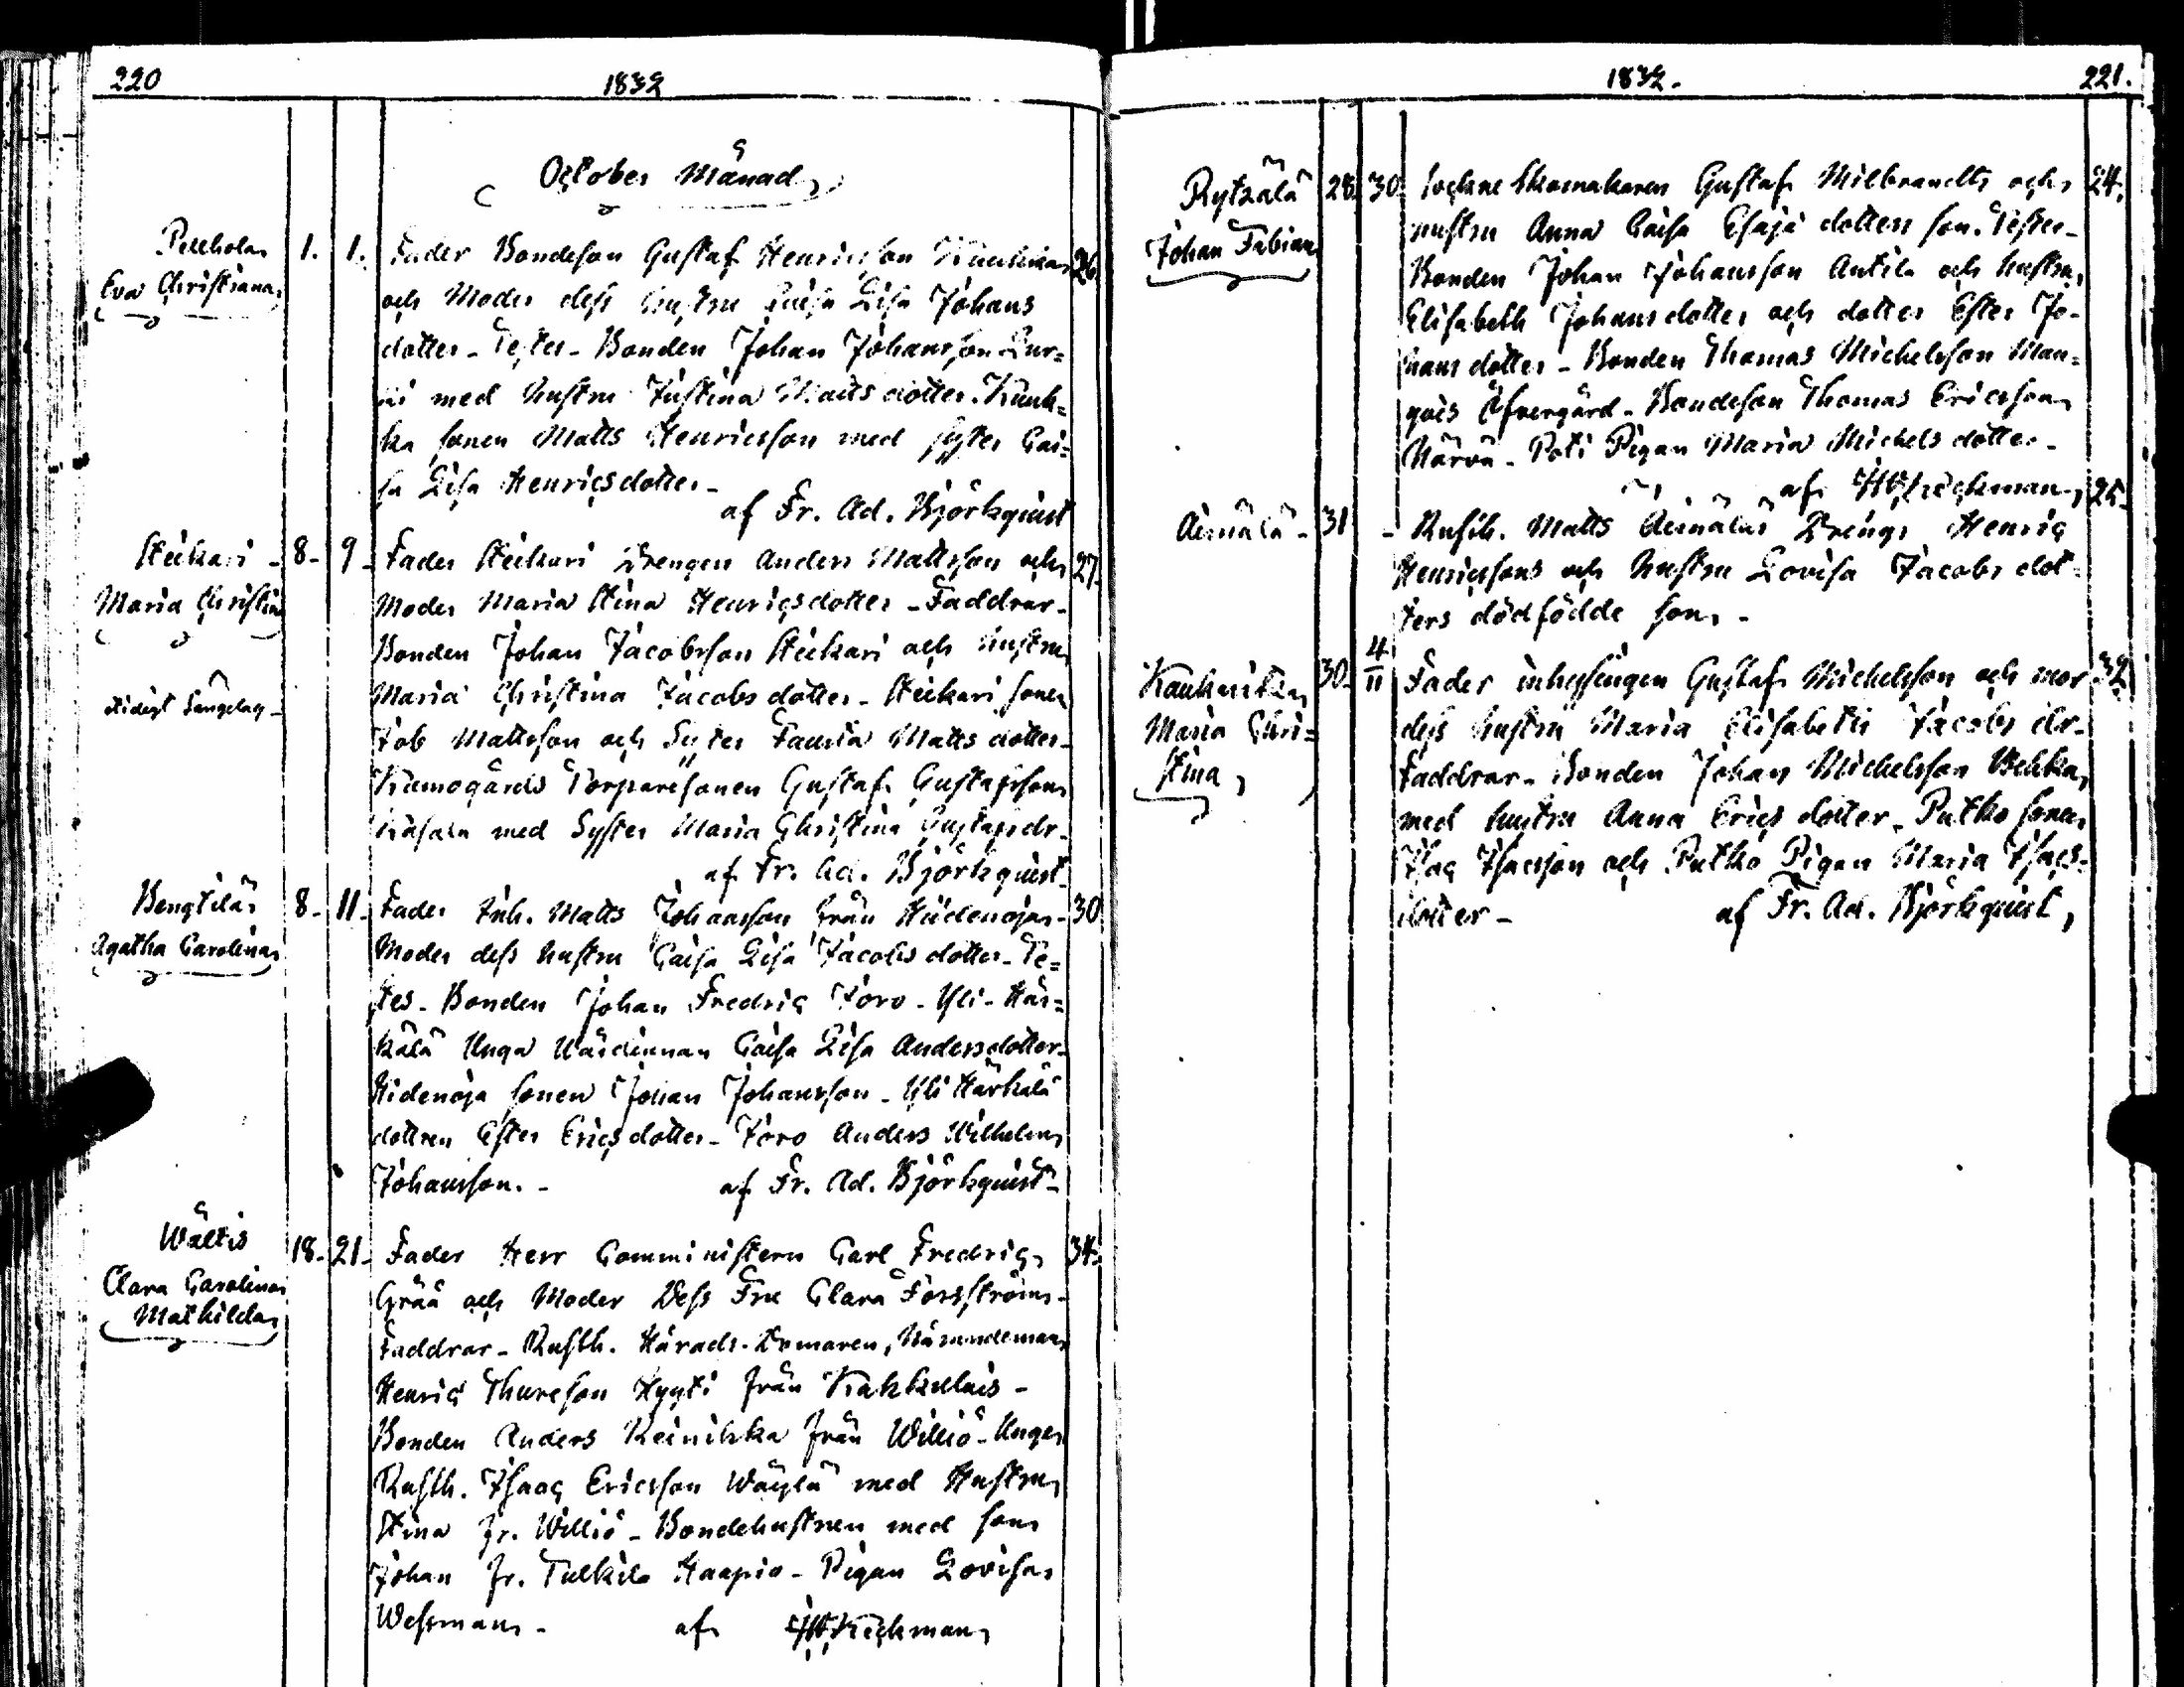 220
1832
October Månad
Pellhola
Eva Christiana
1.
1.
Fader Bondeson Gustaf Henricsson
26
och Moder dess hustru Caisa Lisa Johans
dotter - Testes - Bonden Johan Johansson Lur=
ri med hustru Justina Matts dotter. Kauh=
ka sonen Matts Henricsson med syster Cai=
sa Lisa Henricsdotter -
af Fr. Ad. Björkquist
Stickari -
8-
9-
Fader Stickari Drengen Anders Mattsson och
27-
Maria Christin
Moder Maria Stina Henricsdotter - Faddrar -
Bonden Johan Jacobsson Stickari och hustru
Maria Christina Jacobs dotter - Stickari sonen
Job Mattsson och Syster Matts dotter -
Torparesonen Gustaf Gustafsson
med Syster Maria Christina Gustafsdr -
af Fr. Ad. Björkquist
Bengtilä
8-
11-
Fader Inh. Matts Johansson från Hiidenoja -
30
Agatha Carolina
Moder dess hustru Caisa Lisa Jacobs dotter - Te=
stes - Bonden Johan Fredric Toro - Yli - Här=
kälä Unga Wärdinnan Caisa Lisa Andersdotter -
Hidenoja sonen Johan Johansson - Yli Härkälä
dottren Ester Erics dotter - Toro Anders Wilhelm
Johansson. -
af Fr. Ad. Björkquist -
Wältis
18-
21-
Fader Herr Comministern Carl Fredric
34.
Clara Carolina
Mathilda
Gråå och Moder Dess Fru Clara Forsström -
Faddrar - Rusth. Härads-Domaren, Nämndeman
Henric Thureson Hyyti från Kakkulais -
Bonden Anders Reinikka från Williö - Unge
Rusth. Isaac Ericsson Wäylä med Hustru
Stina fr. Williö - Bondehustrun med son
Johan fr. Tulkila Haapio - Pigan Lovisa
Wessman -
af
1832.
221.
Rytkälä
28.
30.
Sockne Skomakaren Gustaf Milbrandts och
24.
Johan Fabian
hustru Anna Caisa Esaja dotters son. Testes -
Bonden Johan Johansson Antila och hustru
Elisabeth Johans dotter och dotter Ester Jo=
hans dotter - Bonden Thomas Michelsson Man=
gois Öfvergård - Bondeson Thomas Ericsson
Närvä - Poti Pigan Maria Michels dotter -
af
25-
Aimälä -
31
-
Rusth. Matts Aimäläs Drengs Henric
Henricssons och hustru Lovisa Jacobs dot=
ters dödfödde son -
30-
4
11
Fader inhysingen Gustaf Michelsson och mor
32.
Maria Chri=
stina
dess hustru Maria Elisabeth Jacobs dr -
Faddrar - Bonden Johan Michelsson Uhka
med hustru Anna Erics dotter - Putko sonen
Isac Isacsson och Putko Pigan Maria Isacs=
dotter -
af Fr. Ad. Björkquist,